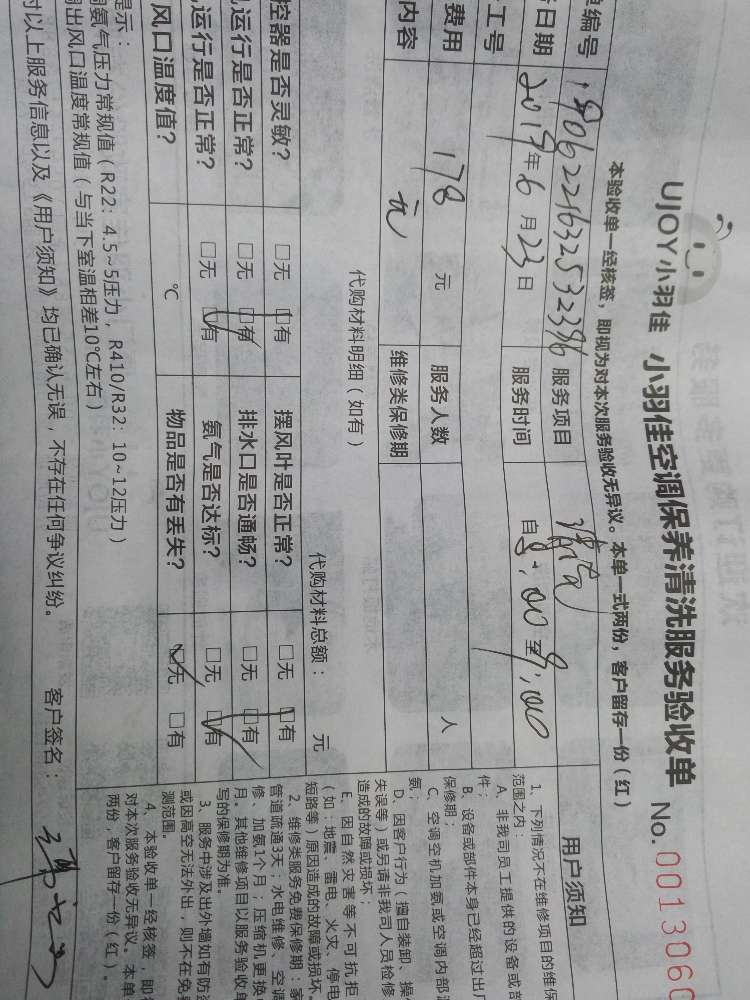 UJOY小羽佳 小羽佳空调保养清洗服务验收单 No. 0013060
本验收单一经核签，即视为对本次服务验收无异议。本单一式两份，客户留存一份（红）
单编号 服务项目
日期 2019年6月23日 服务时间 自8:00至9:00
工号
费用 178元 服务人数 人
内容 元 维修类保修期
代购材料明细（如有） 代购材料总额： 元
控器是否灵敏？ □无 □有 摆风叶是否正常？ □无 □有
运行是否正常？ □无 □有 排水口是否通畅？ □无 □有
运行是否正常？ □无 □有 氨气是否达标？ □无 □有
风口温度值？ ℃ 物品是否有丢失？ □无 □有
提示：
调氨气压力常规值（R22：4.5~5压力，R410/R32：10~12压力）
调出风口温度常规值（与当下室温相差10℃左右）
对以上服务信息以及《用户须知》均已确认无误，不存在任何争议纠纷。 客户签名：
用户须知
1、下列情况不在维修项目的维保
范围之内：
A、非我司员工提供的设备或部
件；
B、设备或部件本身已经超过出厂
保修期；
C、空调空机加氨或空调内部
氨；
D、因客户行为（擅自装卸、操作
失误等）或另请非我司人员检修
造成的故障或损坏；
E、因自然灾害等不可抗拒
（如：地震、雷电、火灾、停电
短路等）原因造成的故障或损坏。
2、维修类服务免费保修期：家
管道疏通3天；水电维修、空调
修、加氨1个月；压缩机更换
月。其他维修项目以服务验收单
写的保修期为准。
3、服务中涉及出外墙如有防盗
或因高空无法外出，则不在免
测范围。
4、本验收单一经核签，即
对本次服务验收无异议。本单
两份，客户留存一份（红）。